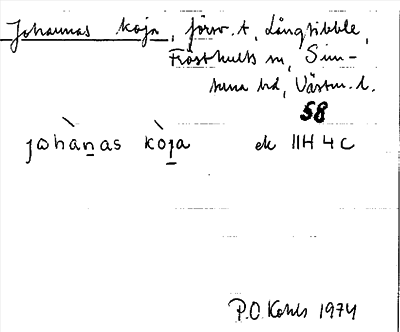 Johannas koja, förr. t. Långtibble,
Frösthults sn, Sim-
tuna hd, Västm. l.
58
johànas kòja ek 11H 4c
P.O. Kohls 1974